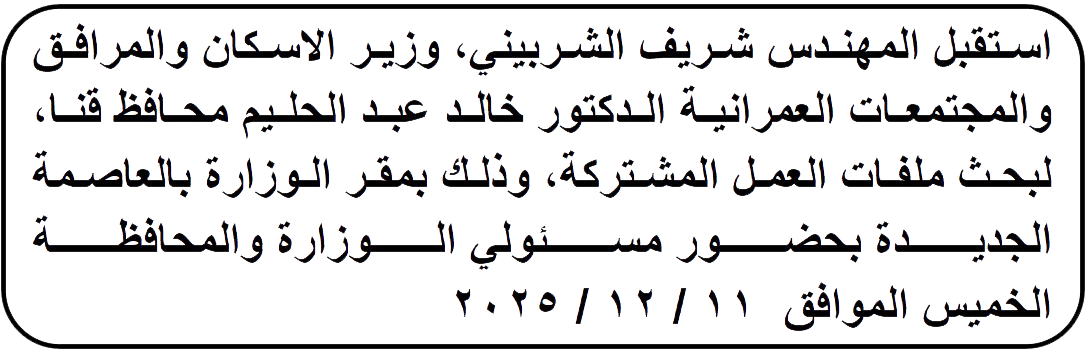 استقبل المهندس شريف الشربيني، وزير الاسكان والمرافق
والمجتمعات العمرانية الدكتور خالد عبد الحليم محافظ قنا،
لبحث ملفات العمل المشتركة، وذلك بمقر الوزارة بالعاصمة
الجديدة بحضور مسئولي الوزارة والمحافظة
الخميس الموافق ١١ / ١٢ / ٢٠٢٥